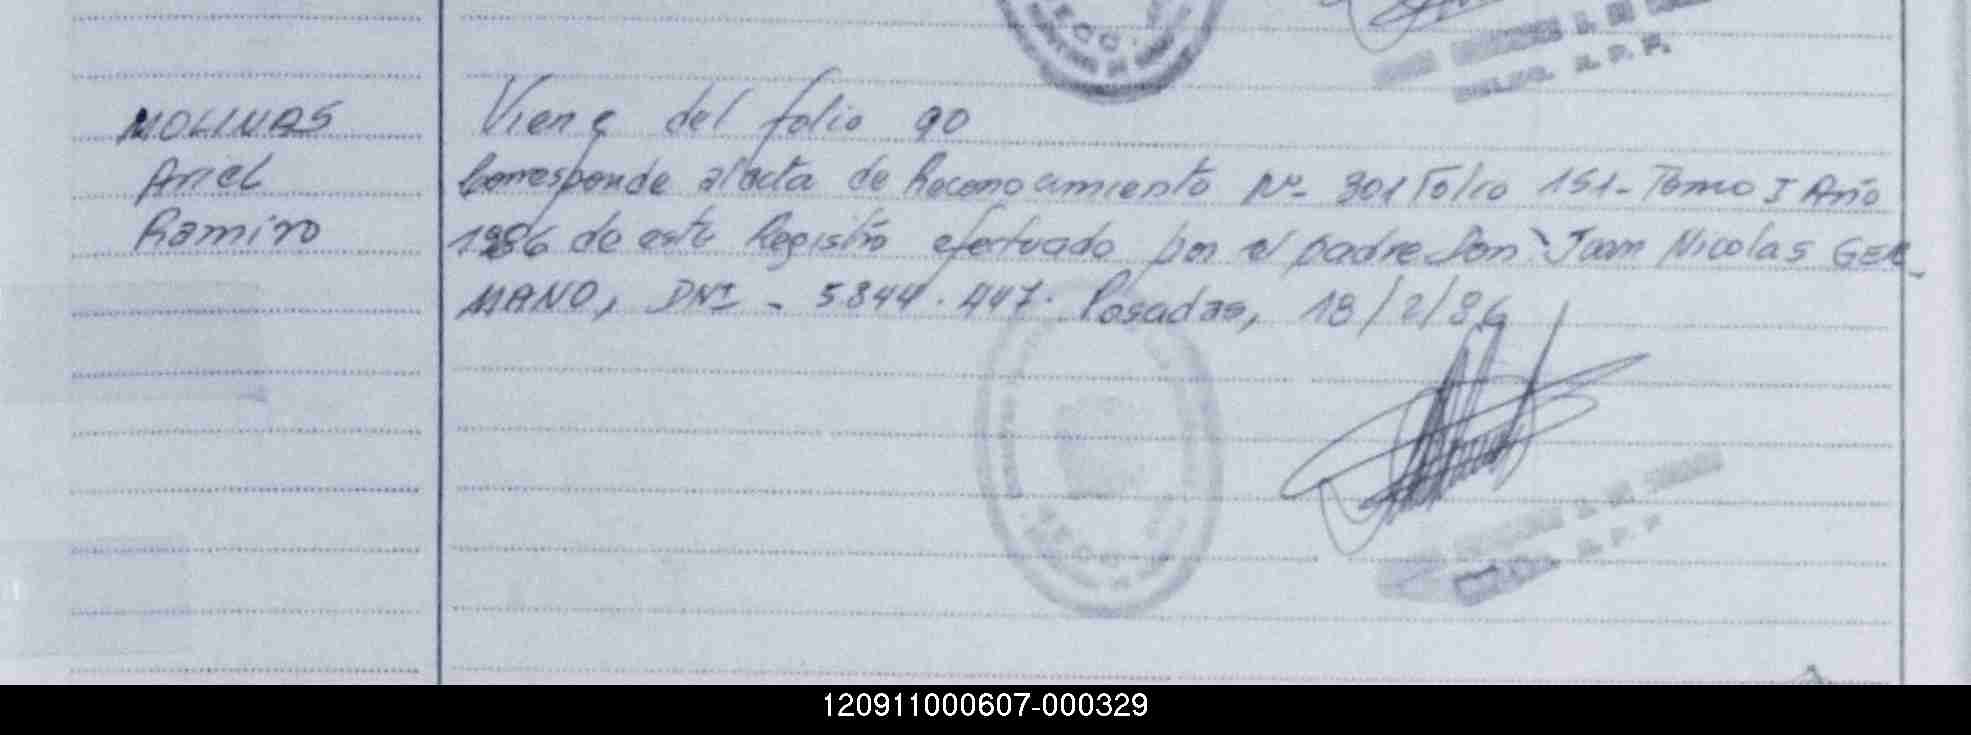 MOLINAS
Ariel
Ramiro
Viene del folio 90
Corresponde al acta de Reconocimiento Nº 301 Folio 151 - Tomo I Año
1986 de este Registro efectuado por el padre Don Juan Nicolas GER-
MANO, DNI - 5.844.447. Posadas, 18/2/86
120911000607-000329